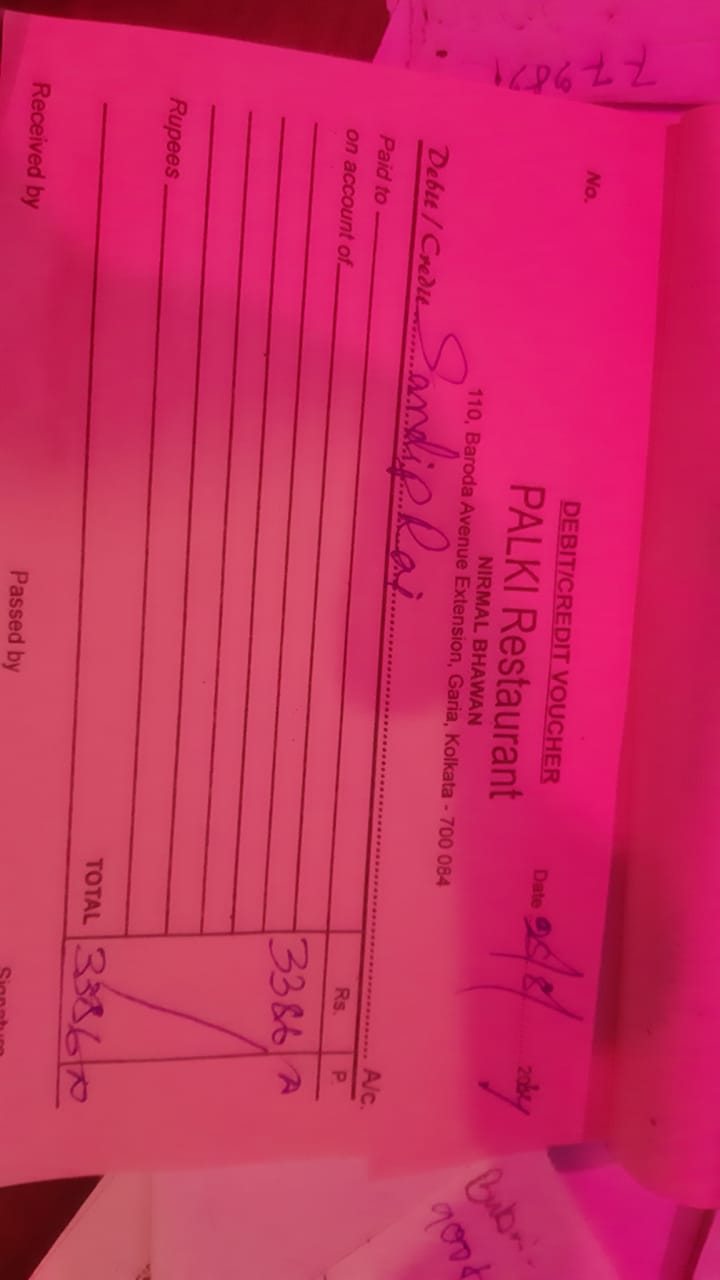 No.
DEBIT/CREDIT VOUCHER
PALKI Restaurant
NIRMAL BHAWAN
110, Baroda Avenue Extension, Garia, Kolkata - 700 084
Date 20
Debit / Credit Sandip Rai A/c.
Paid to
on account of Rs. P.
3386
Rupees
TOTAL 3386
Received by Passed by Signature